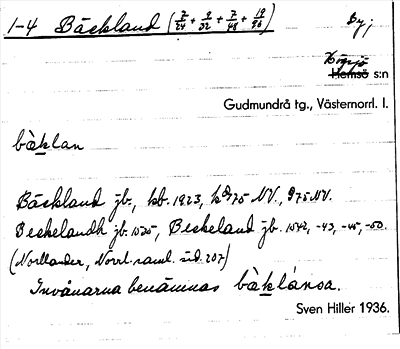 1-4 Bäckland (7/24 + 9/32 + 7/48 + 19/96) By;
Högsjö
Hemsö s:n
Gudmundrå tg., Västernorrl. l.
bäklan
Bäckland jb., kb. 1923, k 75 NV., 975 NV.
Beskelandh jb. 1535, Beskeland jb. 1542, -43, -45, -50.
(Norlander, Norrl. saml. sid. 207)
Invånarna benämnas bäklánsa.
Sven Hillér 1936.